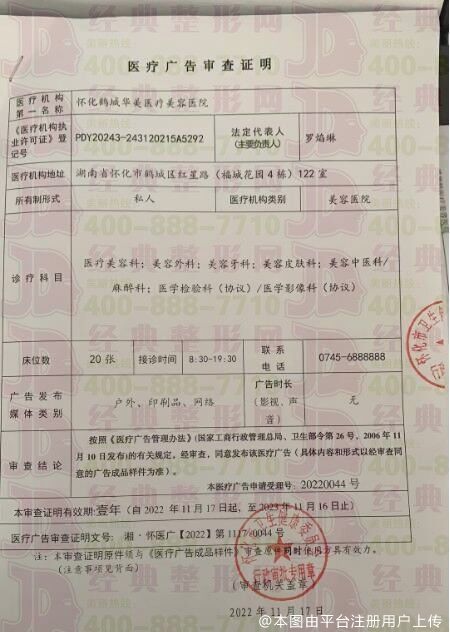 医疗广告审查证明
医疗机构
第一名称
怀化鹤城华美医疗美容医院
《医疗机构执
业许可证》登
记号
PDY20243-243120215A5292
法定代表人
(主要负责人)
罗焰琳
医疗机构地址
湖南省怀化市鹤城区红星路（福城花园4栋）122室
所有制形式
私人
医疗机构类别
美容医院
诊疗科目
医疗美容科；美容外科；美容牙科；美容皮肤科；美容中医科/
麻醉科；医学检验科（协议）/医学影像科（协议）
床位数
20张
接诊时间
8:30-19:30
联系
电话
0745-6888888
广告发布
媒体类别
户外、印刷品、网络
广告时长
（影视、声
音）
无
审查结论
按照《医疗广告管理办法》(国家工商行政管理总局、卫生部令第26号，2006年11
月10日发布)的有关规定，经审查，同意发布该医疗广告（具体内容和形式以经审查同
意的广告成品样件为准）。
本医疗广告申请受理号：20220044号
本审查证明有效期:壹年（自2022年11月17日起，至2023年11月16日止）
医疗广告审查证明文号：湘·怀医广【2022】第1117-0044号
注：本审查证明原件须与《医疗广告成品样件》审查原件同时使用方具有效力。
（注意事项见背面）
行政审批专用章
（审查机关盖章）
2022年11月17日
怀化市卫生
经典整形网
美丽热线：
400-888-7710
@本图由平台注册用户上传